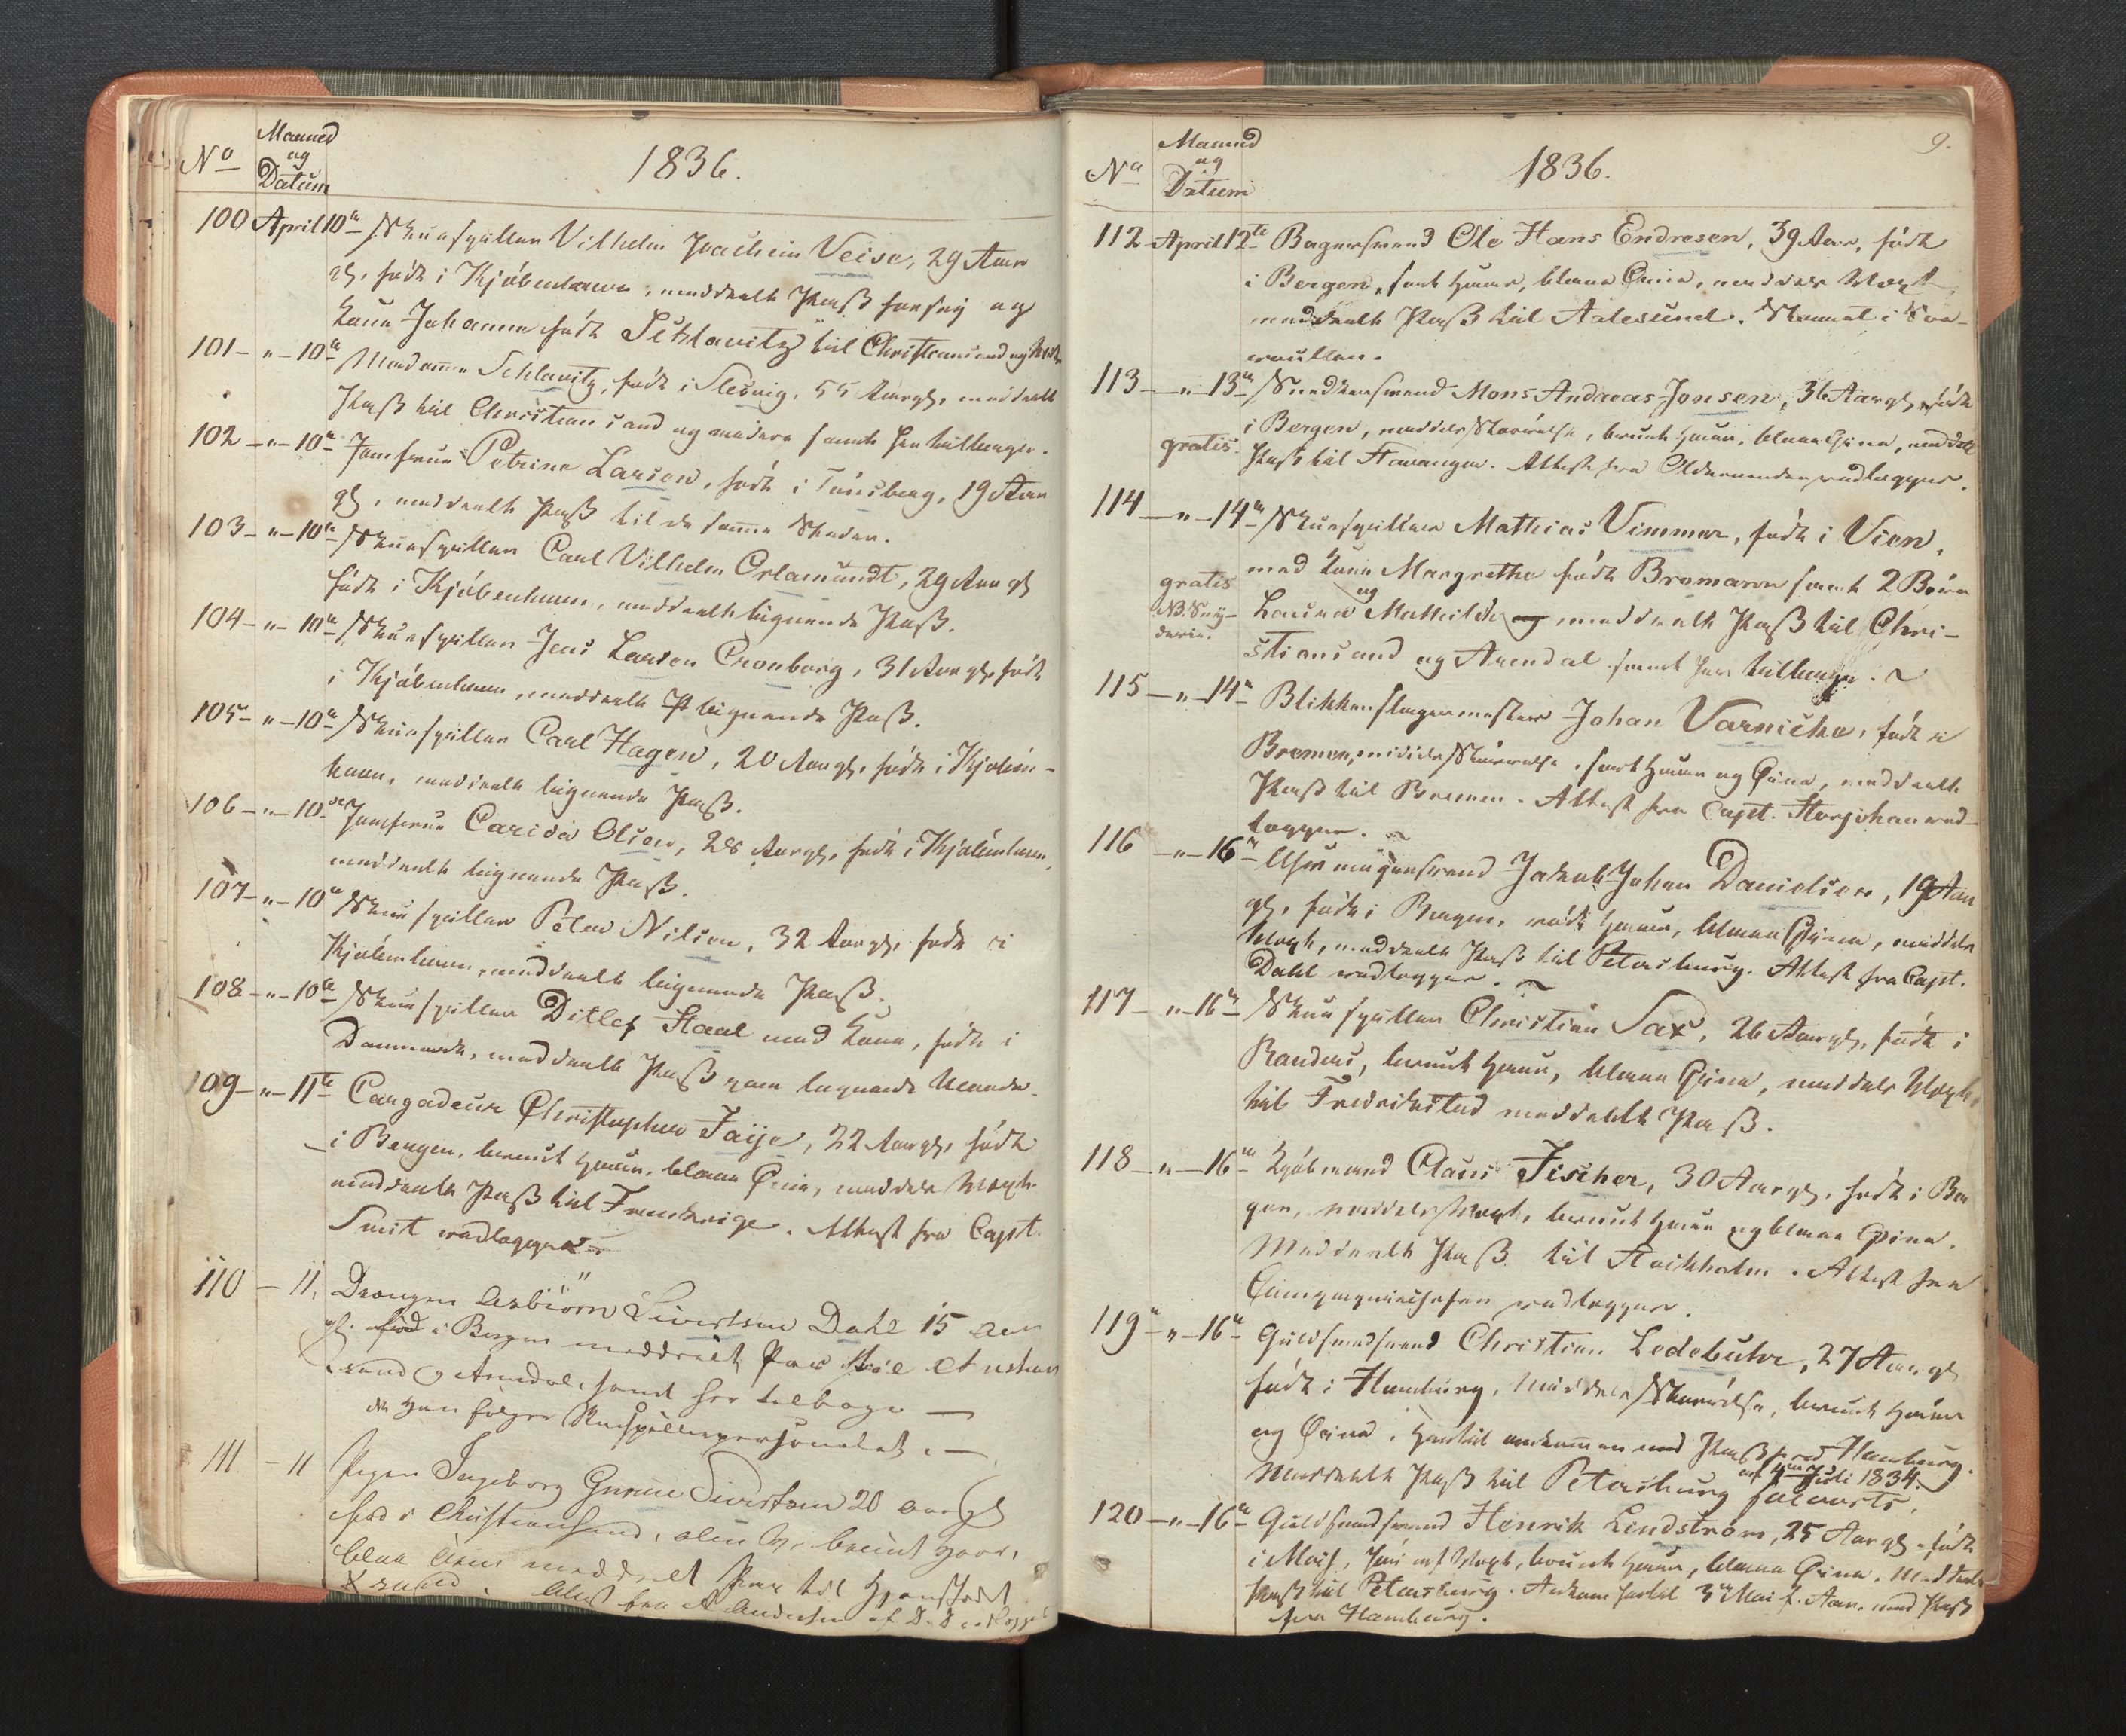 No
Maaned
og
Datum
1836.
100 April 10de Skuespiller Vilhelm Joachim Veise, 29 Aar
gl, født i Kjøbenhavn, meddeelt Pass for sig og
Kone Johanne født Schlavitz til Christiansand og
101 - " - 10de Madamme Schlavitz, født i Slesvig, 55 Aargl, meddeelt
Pass til Christiansand og videre samt her tilbage.
102 - " - 10de Jomfrue Petrine Larsen, født i Tønsberg, 19 Aar
gl, meddeelt Pass til de samme Steder.
103 - " - 10de Skuespiller Carl Vilhelm Orlamundt, 29 Aargl
født i Kjøbenhavn, meddeelt lignende Pass.
104 - " - 10de Skuespiller Jens Larsen Cronborg, 31 Aargl, født
i Kjøbenhavn, meddeelt lignende Pass.
105 - " - 10de Skuespiller Carl Hagen, 20 Aargl, født i Kjøben-
havn, meddeelt lignende Pass.
106 - " - 10de Jomfrue Olsen, 28 Aargl, født i Kjøbenhavn,
meddeelt lignende Pass.
107 - " - 10de Skuespiller Peter Nilsen, 32 Aargl, født i
Kjøbenhavn, meddeelt lignende Pass.
108 - " - 10de Skuespiller Ditlef Staal med Kone, født i
Danmark, meddeelt Pass paa lignende Maade.
109 - " - 11te Cargadeur Christopher Faije, 22 Aargl, født
i Bergen, bruunt Haar, blaae Øine, middels Væxt
meddeelt Pass til Frankrige. Attest fra Capt.
Smit vedlægges
110 - 11. Drengen Asbiørn Sivertsen Dahl 15 Aar
gl. fød i Bergen meddeelt Pas til Christian
sand og Arendal, samt her tilbage —
da han følger Skuespillerpersonalet. —
111 - 11 Pigen Ingeborg Sivertsen 20 aargl
fød i Christiansand, bruunt Haar,
blaa Øine meddeelt Pas til
Attest fra
9.
No
Maaned
og
Datum
1836.
112 April 12te Bagersvend Ole Hans Endresen, 39 Aar, født
i Bergen, sort Haar, blaae Øine, middels Væxt,
meddeelt Pass til Aalesund.
113 - " - 13de Snedkersvend Mons Andreas Jonsen, 36 Aargl, født
i Bergen, middels Størrelse, bruunt Haar, blaae Øine, meddelt
gratis. Pass til Stavanger. Attest fra Oldermanden vedlægges.
114 - " - 14de Skuespiller Mathias Vimmer, født i Vien,
med Kone Margrethe født Bromaron samt 2 Børn
gratis
NB.
Laura og Mathilde og meddeelt Pass til Chri-
stiansand og Arendal samt her tilbage.
115 - " - 14de Blikkenslagermester Johan Varnicke, født i
Bremen, middels Størrelse, sort Haar og Øine, meddeelt
Pass til Bremen. Attest fra Capt. Storjohan ved-
lægges.
116 - " - 16de Uhrmagersvend Jakob Johan Danielsen, 19 Aar
gl, født i Bergen, rødt Haar, blaae Øine, middels
Væxt, meddeelt Pass til Petersburg. Attest fra Capt.
Dahl vedlægges.
117 - " - 16de Skuespiller Christian Sax, 26 Aargl, født i
Randers, bruunt Haar, blaae Øine, middels Væxt,
til Fredrikstad meddeelt Pass.
118 - " - 16de Kjøbmand Claus Fischer, 30 Aargl, født i Ber
gen, middels Væxt, bruunt Haar og blaae Øine.
Meddeelt Pass til Stockholm. Attest fra
Compagniechefen vedlægges.
119 - " - 16de Guldsmedsvend Christian Ledebuhr, 27 Aargl
født i Hamburg, middels Størrelse, bruunt Haar
og Øine. Hertil ankommen med Pass fra Hamburg.
af 4de Juli 1834.
Meddeelt Pass til Petersburg
120 - " - 16de Guldsmedsvend Henrik Lindstrøm, 25 Aargl, født
i Væxt, bruunt Haar, blaae Øine. Meddeelt
Pass til Petersburg. Ankom hertil 3de Mai f. Aar. med Pass
fra Hamburg.